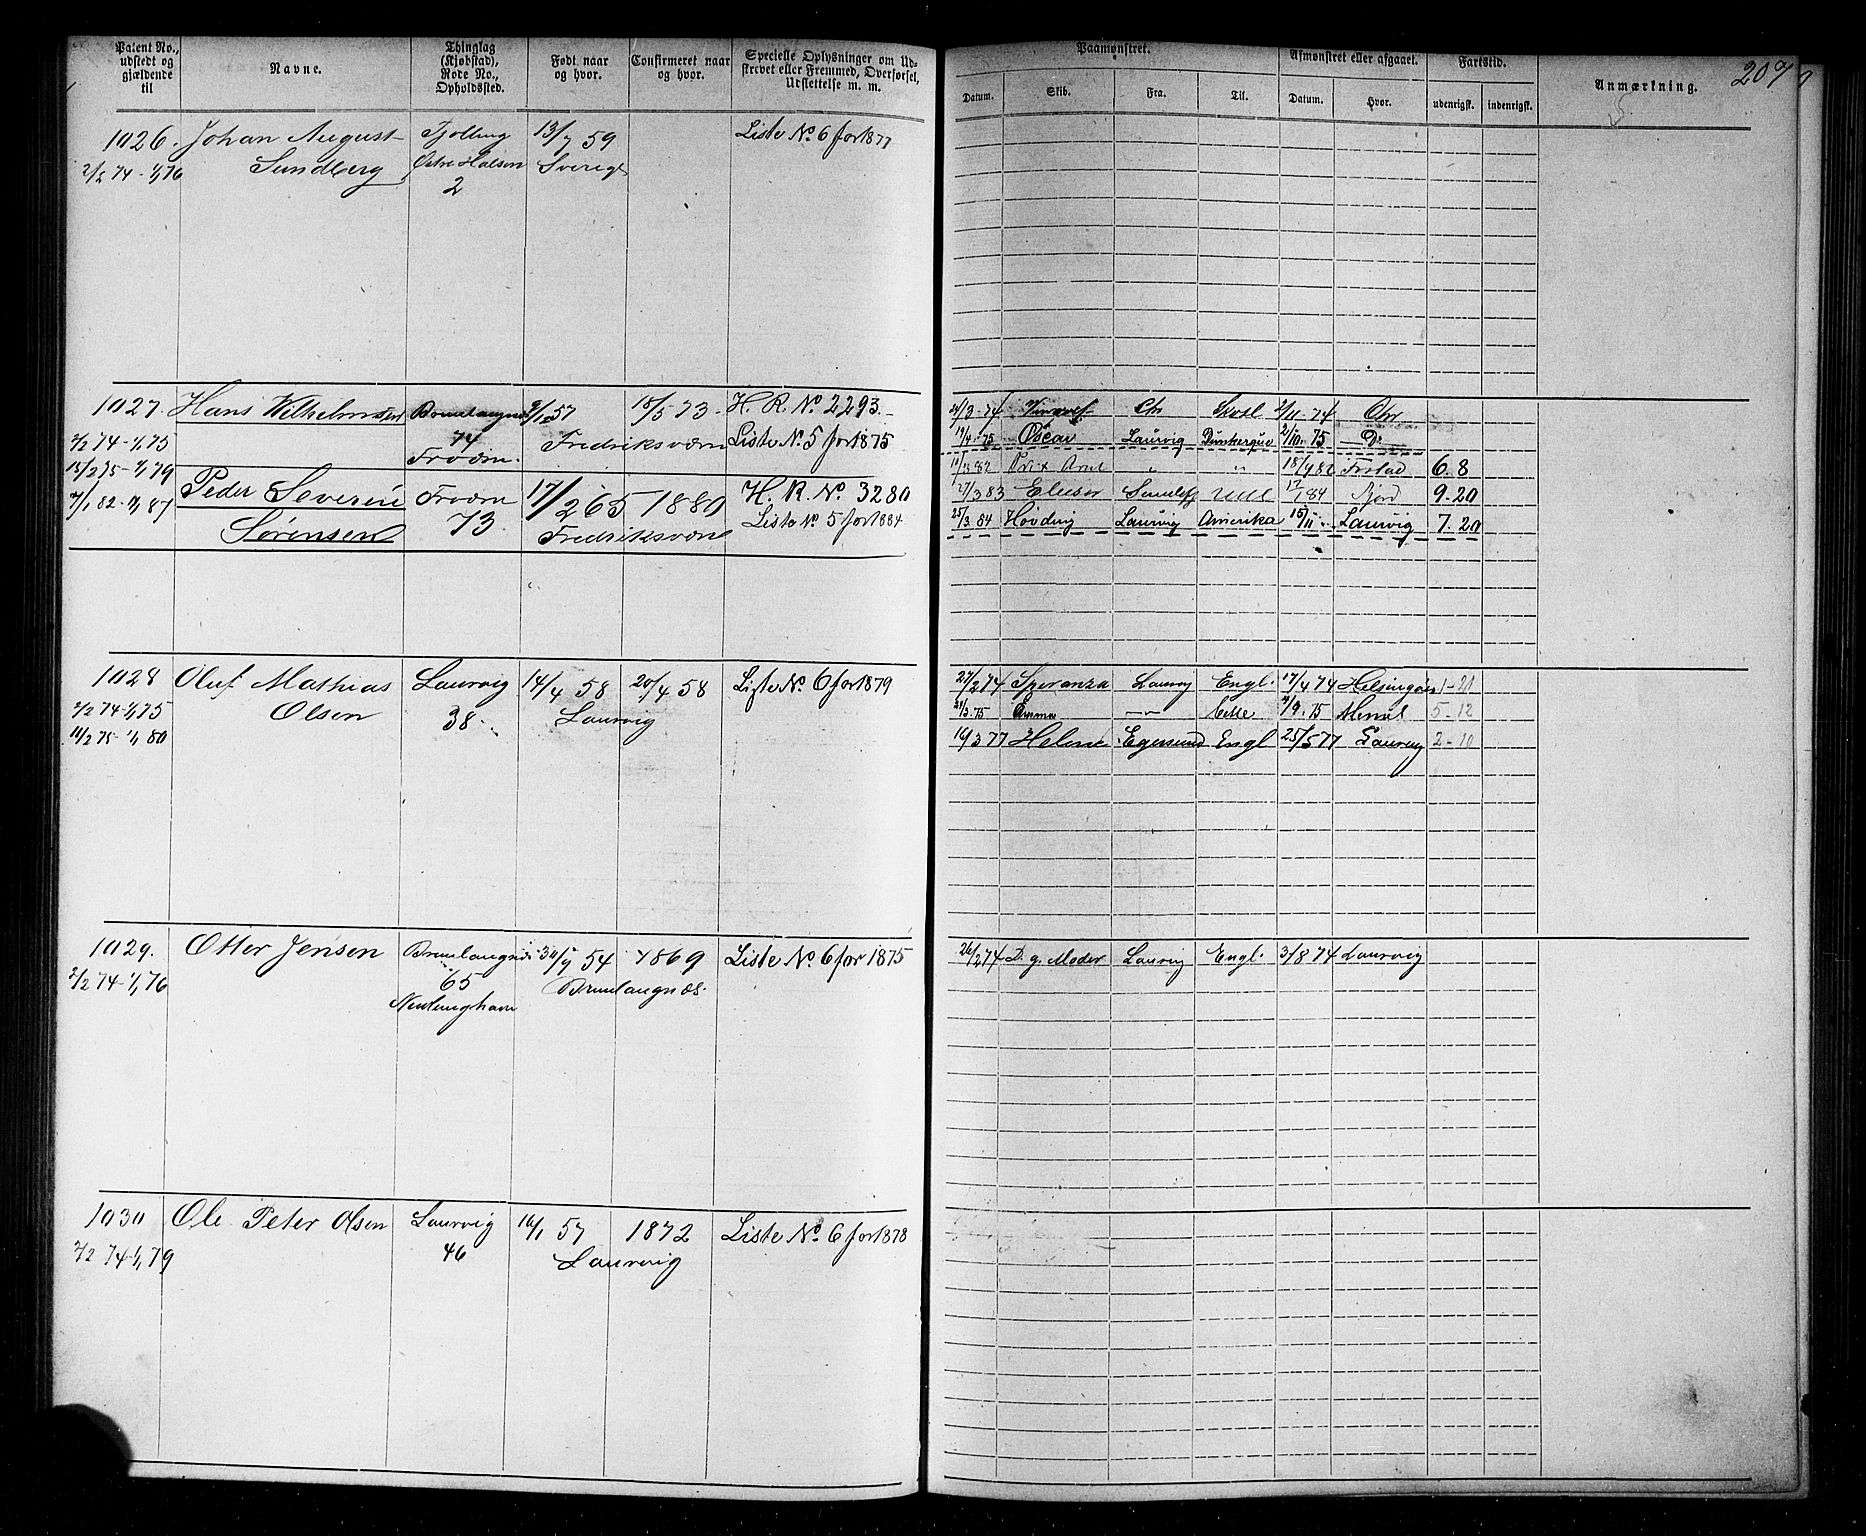 207
Patent No., udstedt og gjældende til
Navne.
Thinglag (Kjøbstad), Rode No., Opholdssted.
Født naar og hvor.
Confirmeret naar og hvor.
Specielle Oplysninger om Udskrevet eller Fremmed, Overførsel, Udslettelse m. m.
Paamønstret.
Afmønstret eller afgaaet.
Fartstid.
Anmærkning.
Datum. Skib. Fra. Til. Datum. Hvor. udenrigsk. indenrigsk.
1026. Johan August Tjølling 13/7 59 Liste No 6 for 1877
2/2 74-1/1 76 Sundberg Østre Halsen Sverige
2
1027. Hans Wilhelmsen Brunlangnæs 57 15/5 73 H. R. No 2293.
2/2 74-1/1 75 74 Fredriksværn Liste No 5 for 1875
15/2 75-1/1 79 Frværn.
1/82-1/1 87 Peder Severin Frværn 17/2 65 1880 H. R. No. 3280
Sørensen 73. Fredriksværn Liste No 5 for 1884
3-74 Chr 2/11-74 Chr
19/4-75 Oscar Laurvig Dünkerque 2/10.75 — Do
82 " " 18/9 82 6.8
27/3 83 84 9-20
25/3 84 Høvding Laurvig Amerika 15/11 " Laurvig 7.20
1028 Oluf Mathias Laurvig 14/4 58 20/4 58 Liste No. 6 for 1879
2/2 74-1/1 75 Olsen 38. Laurvig
11/2 75-1/1 80
27/2 74 Speranza Laurvig Engl. 17/4 74 Helsingør 1-21
3.75 Emma —"— 9.75 5-12
16/3 77 Helene Egersund Engl 25/5 77 Laurvig 2-10
1029. Otter Jensen Brunlangnæs 54 1869 Liste No. 6 for 1875
2/2 74-1/1 76 65 Brunlangnæs.
Nevlunghavn
26/2 74 D. g. Moder Laurvig Engl. 3/8 74 Laurvig
1030 Ole Peter Olsen Laurvig 16/1 57 1872 Liste No. 6 for 1878
2/2 74-1/1 79 46 Laurvig